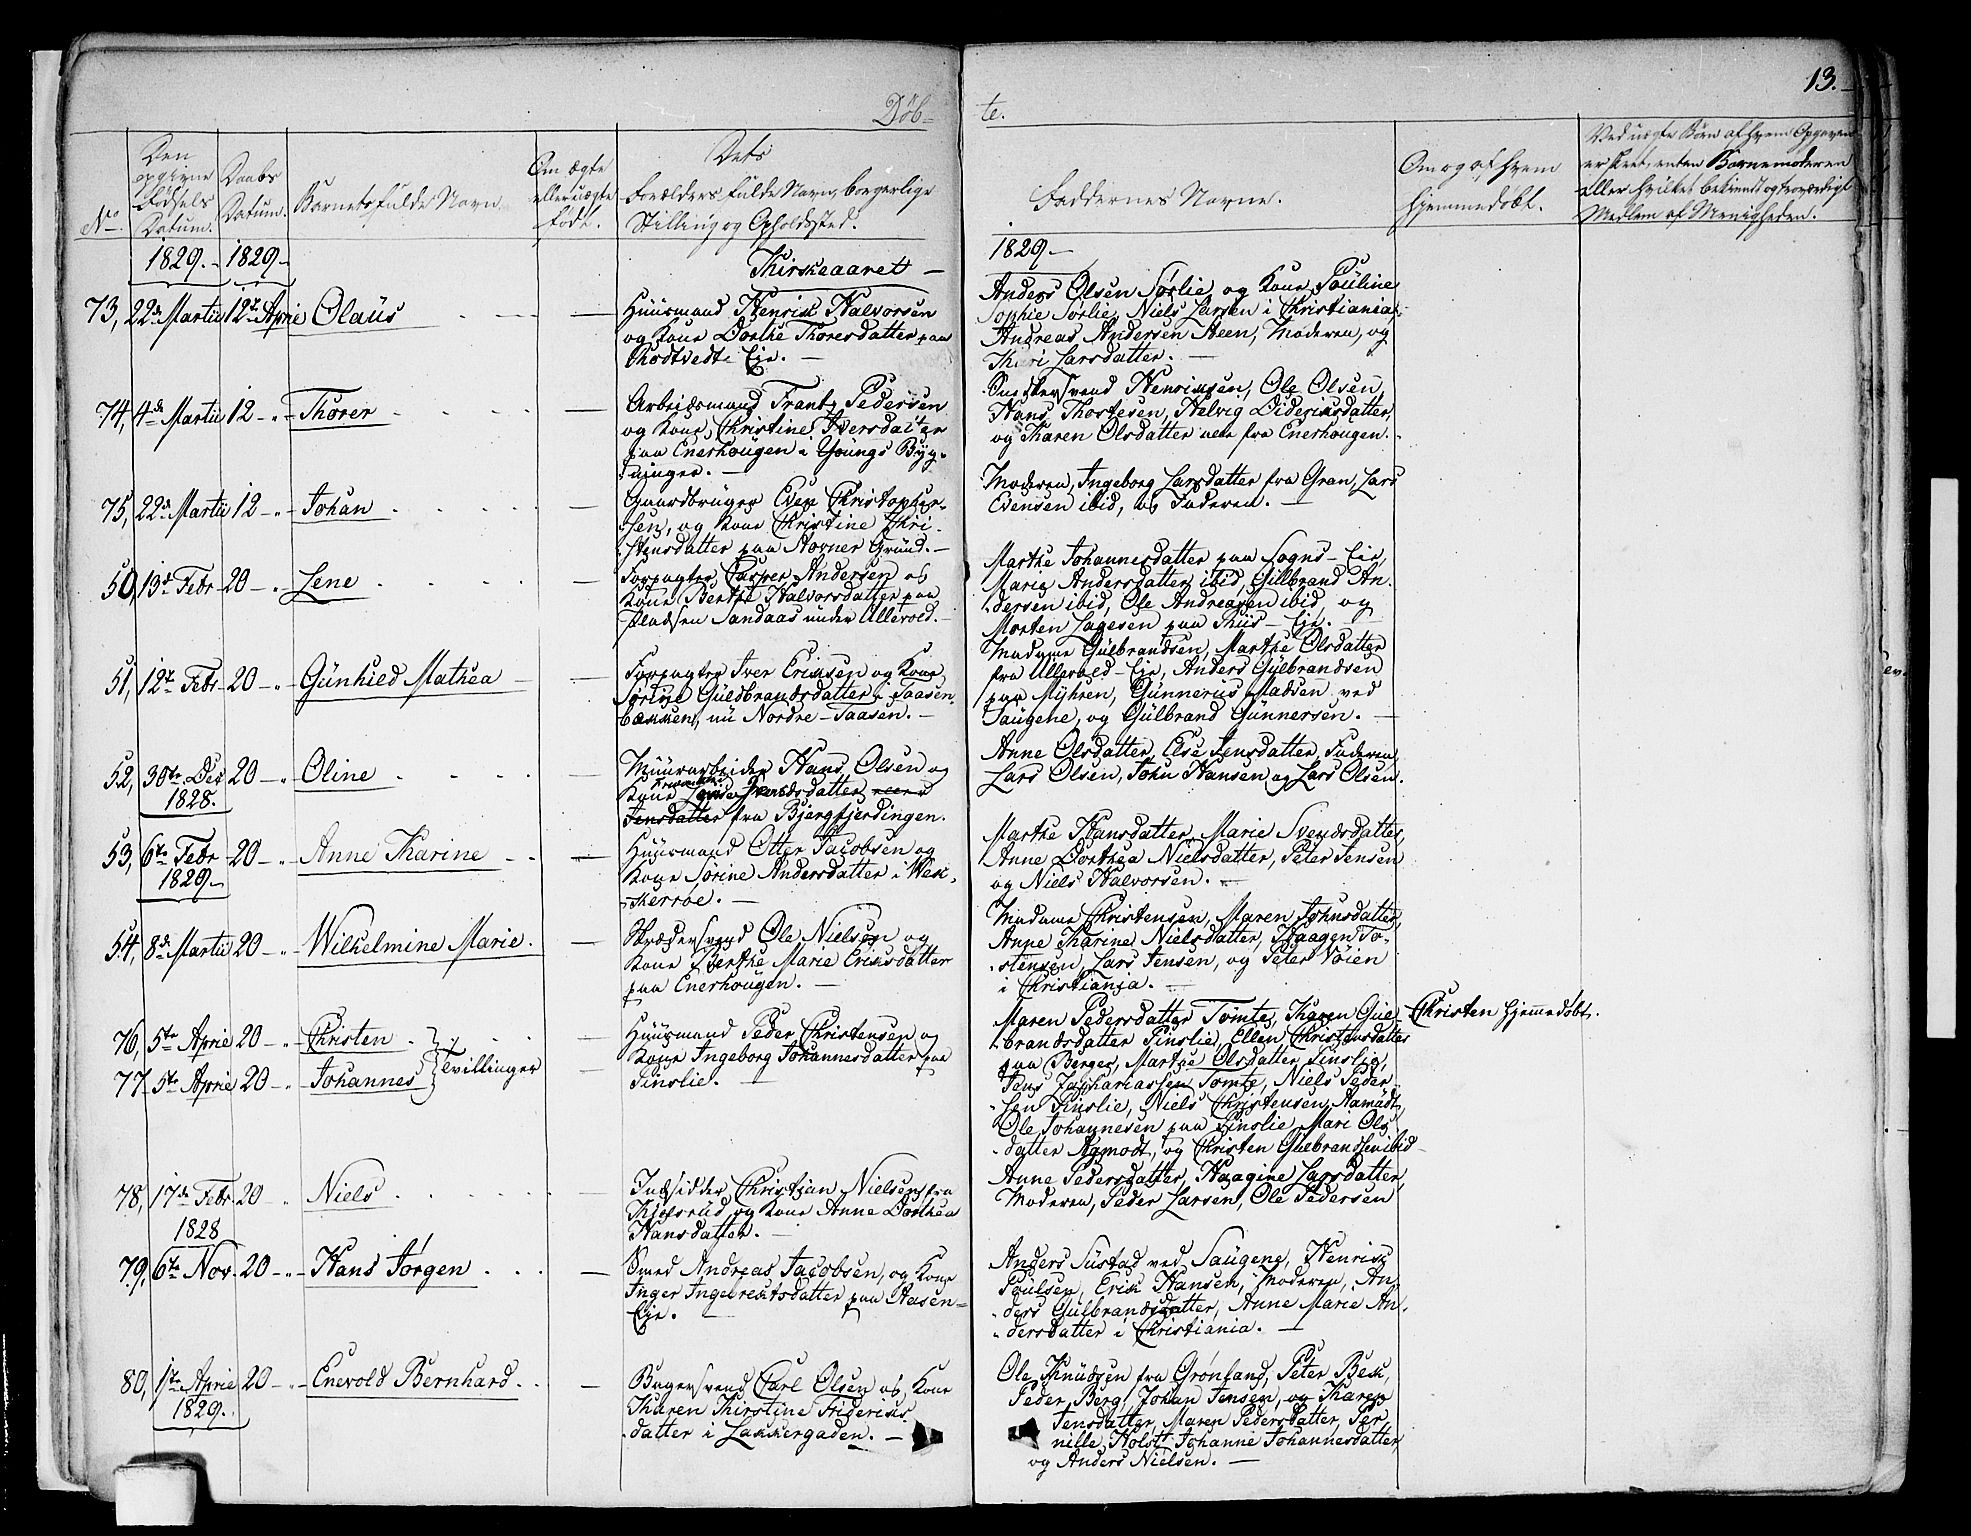 13.
Döb- te.
No. Den opgivne Fødsels Datum. Daabs Datum. Barnets fulde Navn. Om ægte eller uægte født. Dets Forældres fulde Navn, borgerlige Stilling og Opholdssted. Faddernes Navne. Om og af hvem hjemmedøbt. Ved uægte Børn af hvem Opgaven er skeet, enten Barnemoderen eller hvilket bekiendt og troværdigt Medlem af Menigheden.
1829.- 1829- Kirkeaaret - 1829.-
73, 22de Martii 12te April Olaüs
Huusmand Henrik Halvorsen
og Kone Dorthe Thoresdatter paa
Rødtvedt Eje. -
Anders Olsen Sørlie og Kone Pauline
Sophie Sørlie, Niels Larsen i Christiania,
Andreas Andersen Steen, Moderen, og
Larsdatter. -
74, 4de Martii 12 -"- Thorer
Arbeidsmand Frantz Pedersen
og Kone Christine Iversdatter
paa Enerhougen i Youngs Byg-
ninger. -
Snedkersvend Henriksen, Ole Olsen,
Hans Thostesen, Helvig Dideriksdatter,
og Karen Olsdatter alle fra Enerhougen.
75, 22de Martii 12 -"- Johan
Gaardbruger Even Christopher-
sen, og Kone Christine Chri-
stensdatter paa Stovner Gründ. -
Moderen, Ingeborg Larsdatter fra Gran, Lars
Evensen ibid, og Faderen. -
50, 13de Febr 20 -"- Lene
Forpagter Casper Andersen og
Kone Berthe Halvorsdatter paa
Pladsen Sandaas under Ullevold. -
Marthe Johannesdatter paa Sogns-Eje,
Marie Andersdatter ibid, Gülbrand An-
dersen ibid, Ole Andreasen ibid, og
Morten Lagesen paa Riis-Eje. -
51, 12te Febr 20 -"- Günhild Mathea
Forpagter Iver Eriksen og Kone
Sørine Guldbrandsdatter i Taasen-
bakken, nü Nordre-Taasen. -
Madame Gülbrandsen, Marthe Olsdatter
fra Ullevold-Eje, Anders Gülbrandsen
paa Myhren, Günnerius Madsen ved
Saügene, og Gülbrand Günnersen. -
52, 30te Dec 20 -"- Oline
1828.
Muurarbeider Hans Olsen og
Kone datter
Jensdatter fra Bjergfjerdingen.
Anne Olsdatter, Else Jensdatter, Faderen,
Lars Olsen, John Hansen og Lars Olsen.
53, 6te Febr 20 -"- Anne Karine
1829.-
Huusmand Otter Jacobsen og
Kone Sørine Andersdatter i Væk-
kerøe. -
Marthe Hansdatter, Marie Svendsdatter,
Anne Dorthea Nielsdatter, Peter Jensen
og Niels Halvorsen. -
54, 8de Martii 20 -"- Wilhelmine Marie.
Skrædersvend Ole Nielsen og
Kone Berthe Marie Eriksdatter
paa Enerhougen. -
Madame Christensen, Maren Johnsdatter,
Anne Karine Nielsdatter, Haagen To-
stensen, Lars Jensen, og Peter Vøien
i Christiania. -
76, 5te April 20 -"- Christen
77 5te April 20 -"- Johannes
Tvillinger
Huusmand Peder Christensen og
Kone Ingeborg Johannesdatter paa
Linslie. -
Maren Pedersdatter Tømte, Karen Gul-
brandsdatter Linslie, Ellen Christensdatter
paa Berger, Marthe Olsdatter Linslie,
Jens Zachariassen Tømte, Niels Peder-
sen Linslie, Niels Christensen Aamödt,
Ole Johannesen paa Linslie, Mari Ols-
datter Aamodt, og Christen Gulbrandsen ibid
Christen hjemmedøbt.
78, 17de Febr. 20 -"- Niels
1828
Indsidder Christian Nielsen fra
og Kone Anne Dorthea
Hansdatter. -
Anne Pedersdatter, Haagine Larsdatter,
Moderen, Peder Larsen, Ole Pedersen
79, 6te Nov. 20 -"- Hans Jørgen
Smed Andreas Jacobsen, og Kone
Inger Ingebrektsdatter paa Aasen-
Eje. -
Anders Süstad ved Saügene, Henrik
Poülsen, Erik Hansen, Moderen, An-
ders Gülbrandsdatter, Anne Marie An-
dersdatter i Christiania. -
80, 1te April 20 -"- Enevold Bernhard.
1829.
Bagersvend Carl Olsen og Kone
Karen Kirstine Frideriks-
datter i Lakkergaden. -
Ole Knüdsen fra Grønland, Peter Bek,
Peder Berg, Johan Jensen, og Karen
Jensdatter, Maren Pedersdatter, Per-
nille Holst, Johanne Johannesdatter
og Anders Nielsen. -